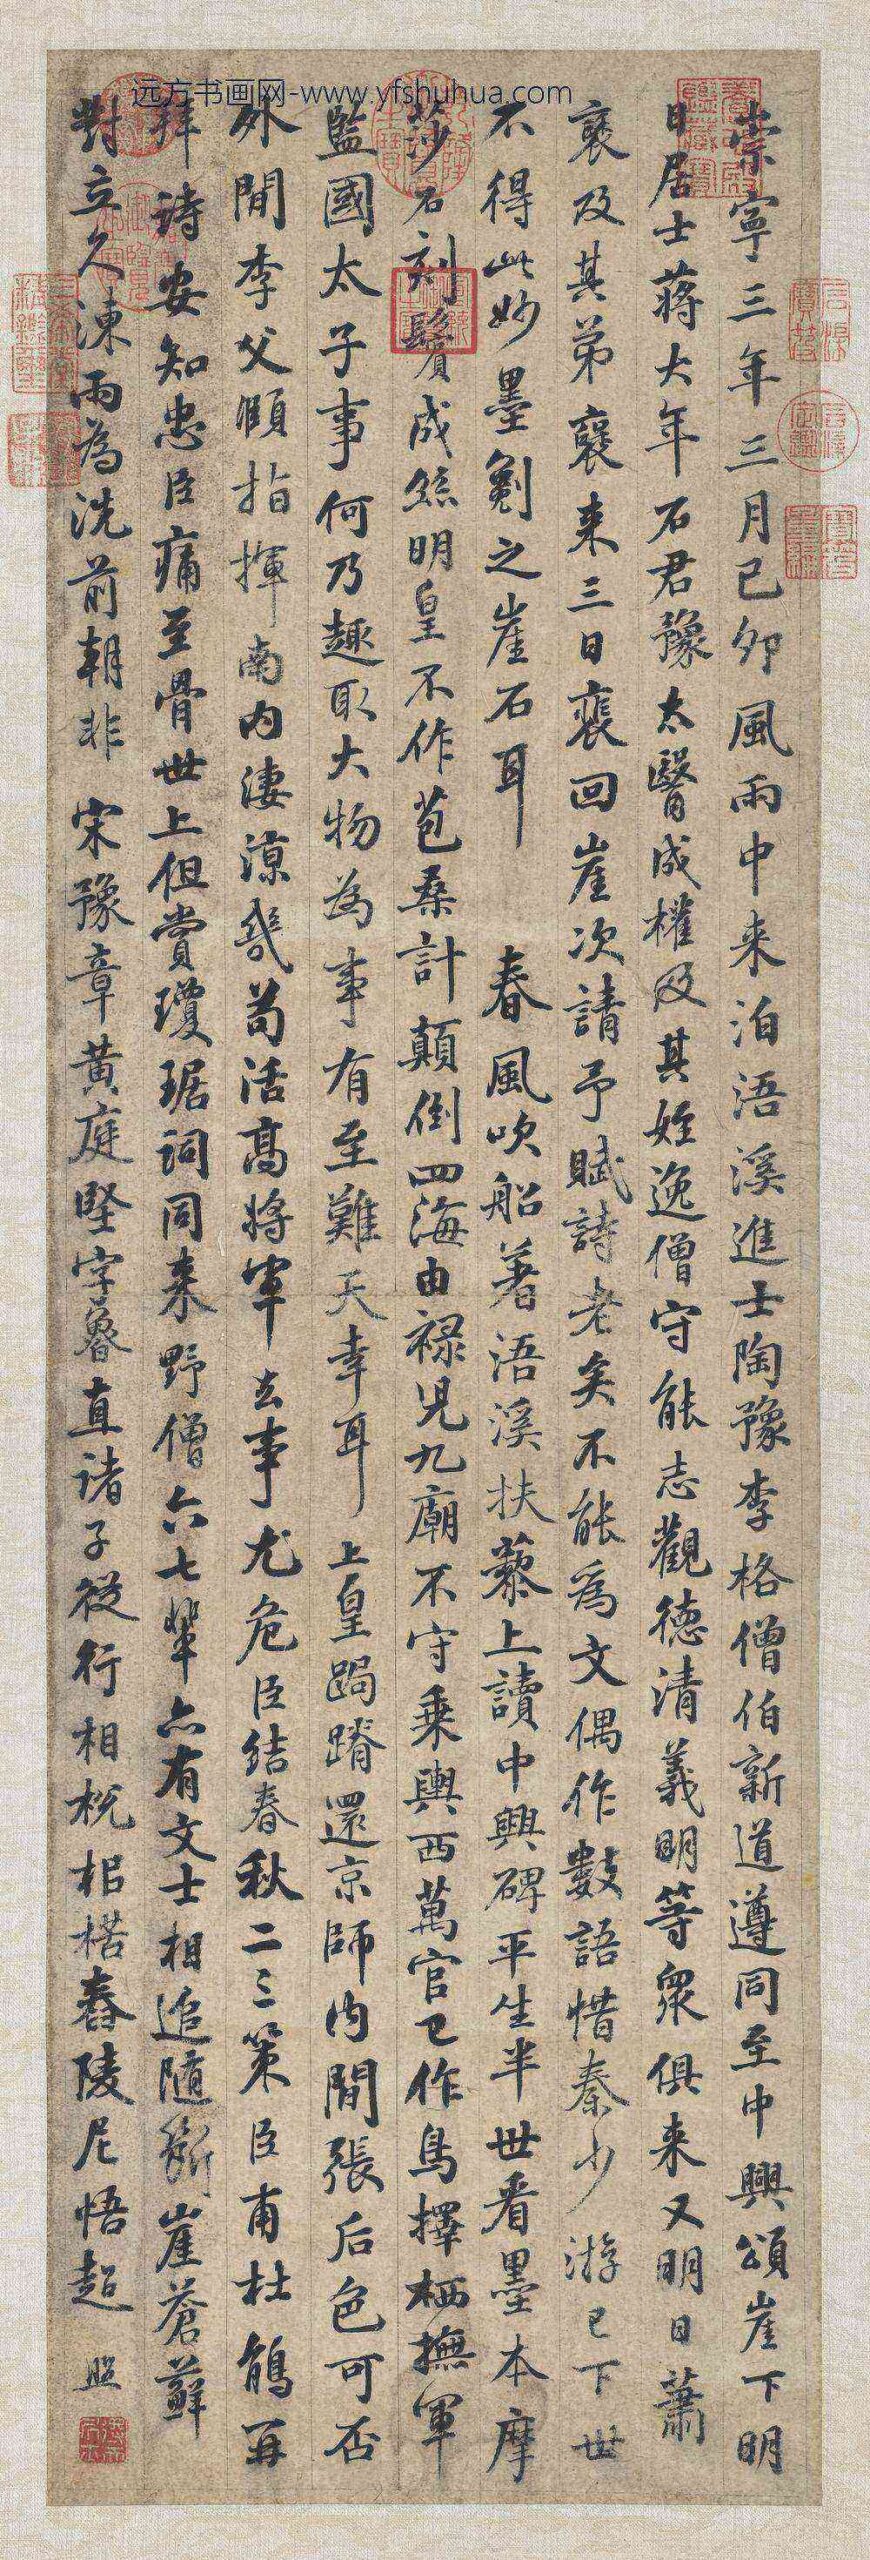 远方书画网-www.yfshuhua.com
崇寧三年三月己卯風雨中来泊浯溪進士陶豫李格僧伯新道遵同至中興頌崖下明
日居士蔣大年石君豫太醫成權及其姪逸僧守能志觀德清義明等眾俱来又明日蕭
襃及其弟襃来三日裴回崖次請予賦詩老矣不能爲文偶作數語惜秦少游已下世
不得此妙墨劖之崖石耳 春風吹船著浯溪扶藜上讀中興碑平生半世看墨本摩
莎石刻鬢成絲明皇不作苞桑計顛倒四海由禄兒九廟不守乗輿西萬官已作鳥擇栖撫軍
監國太子事何乃趣取大物為事有至難天幸耳上皇跼蹐還京師内間張后色可否
外間李父頤指揮南内淒涼幾苟活髙將軍去事尤危臣結春秋二三策臣甫杜鵑再
拜詩安知忠臣痛至骨世上但賞瓊琚詞同来野僧六七輩亦有文士相追随斷崖蒼蘚
對立久涷雨為洗前朝非 宋豫章黄庭堅字魯直諸子從行相梲相楛舂陵尼悟超 照